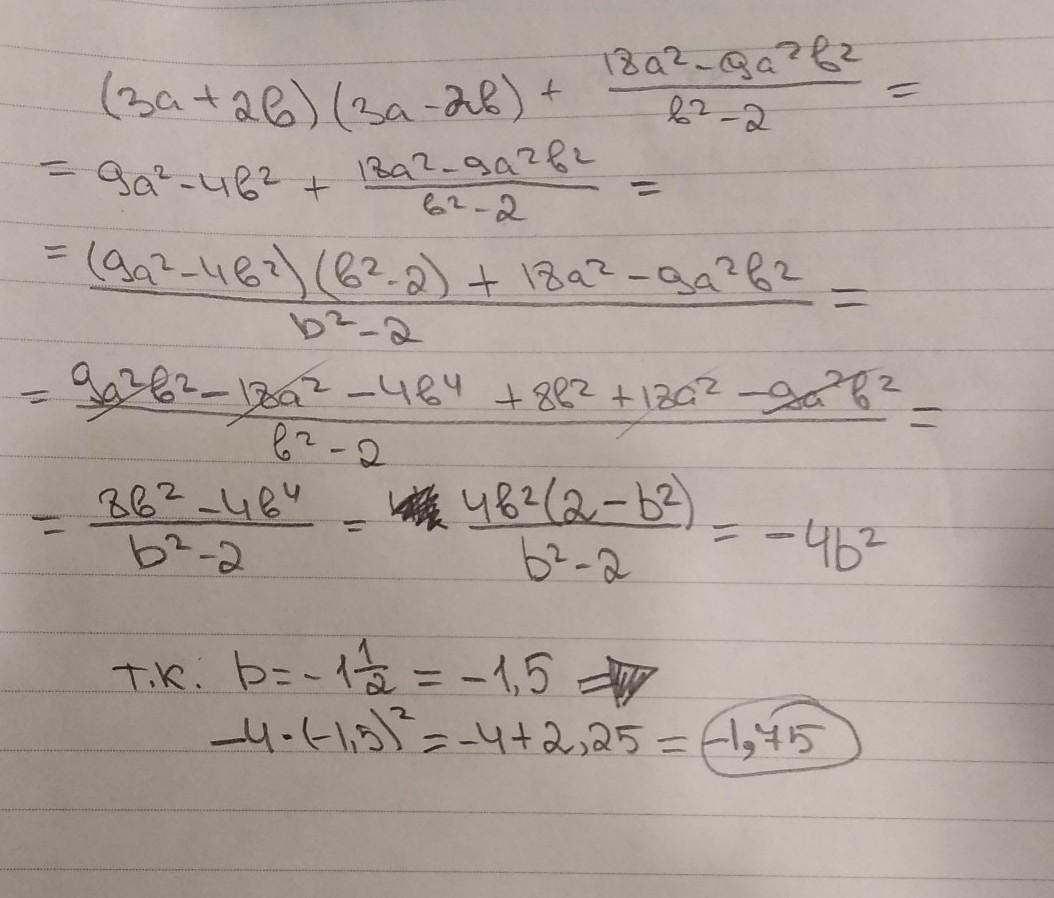 (3a + 2b)(3a - 2b) + \frac{18a² - 9a²b²}{b² - 2} =
= 9a² - 4b² + \frac{18a² - 9a²b²}{b² - 2} =
= \frac{(9a² - 4b²)(b² - 2) + 18a² - 9a²b²}{b² - 2} =
= \frac{9a²b² - 18a² - 4b⁴ + 8b² + 18a² - 9a²b²}{b² - 2} =
= \frac{8b² - 4b⁴}{b² - 2} = \frac{4b²(2 - b²)}{b² - 2} = -4b²
т.к. b = -1\frac{1}{2} = -1,5 ⇒
-4 · (-1,5)² = -4 + 2,25 = -1,75